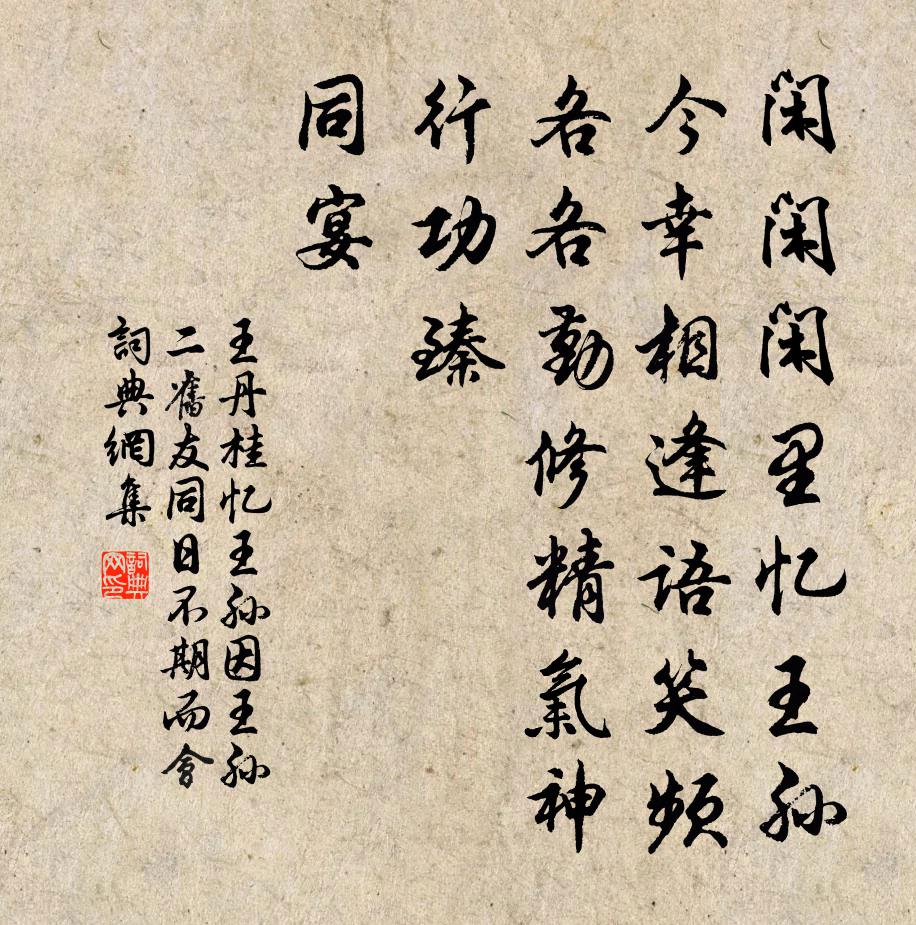 闲闲闲里忆王孙
今幸相逢語笑頻
各各勤修精氣神
行功臻
同宴
王丹桂忆王孙因王孙
二舊友同日不期而會
詞典網集
詞典网印